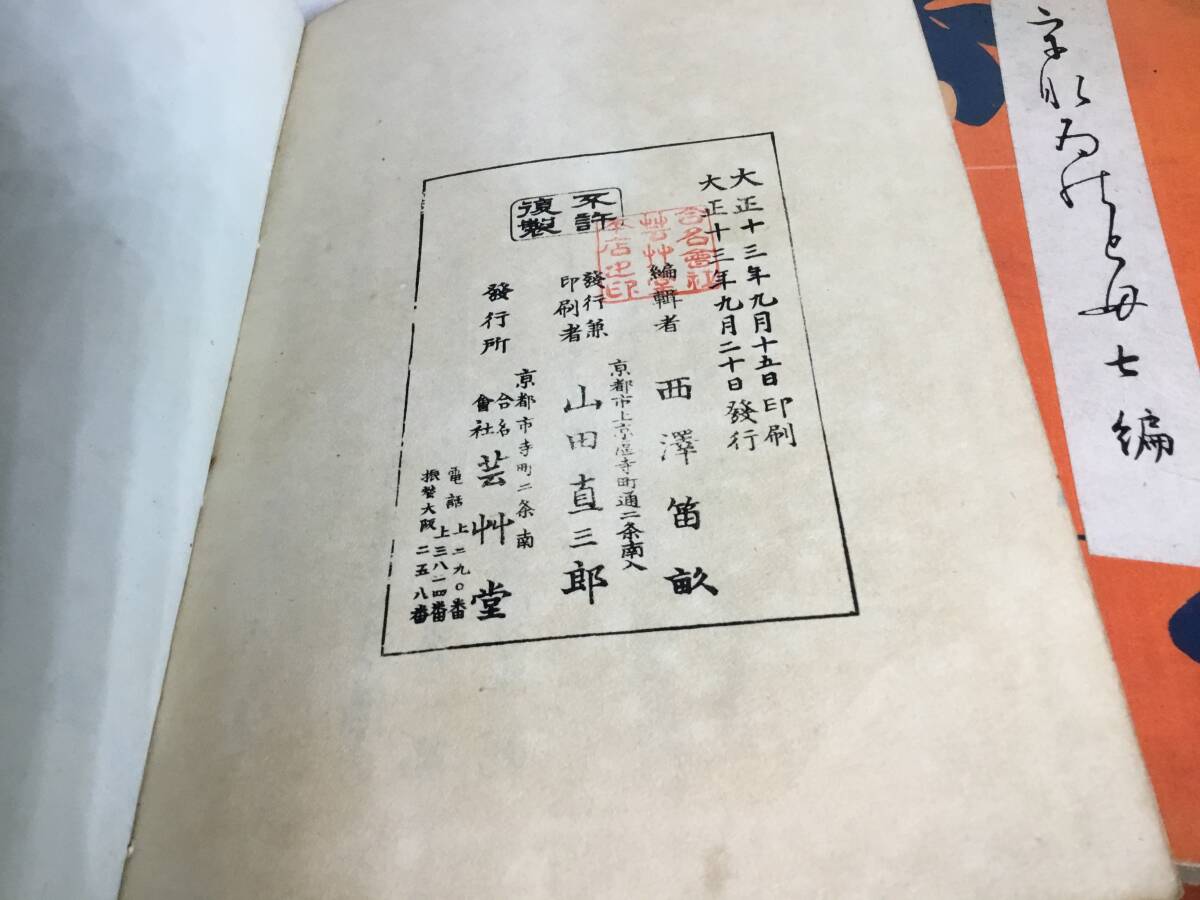 大正十三年九月十五日印刷
大正十三年九月二十日發行
編輯者 西澤笛畝
京都市上京區寺町通二条南入
發行兼
印刷者 山田直三郎
京都市寺町二条南
發行所 合名會社 芸艸堂
電話 上二九〇番
上三八一四番
振替大阪 二五八番
不許
復製
合名會社
芸艸堂
本店之印
七編